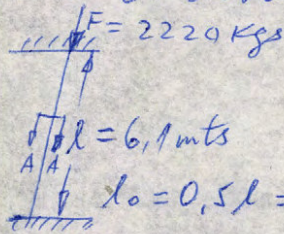 F = 2220 Kgs
l = 6,1 mts
A A
l₀ = 0,5 l =